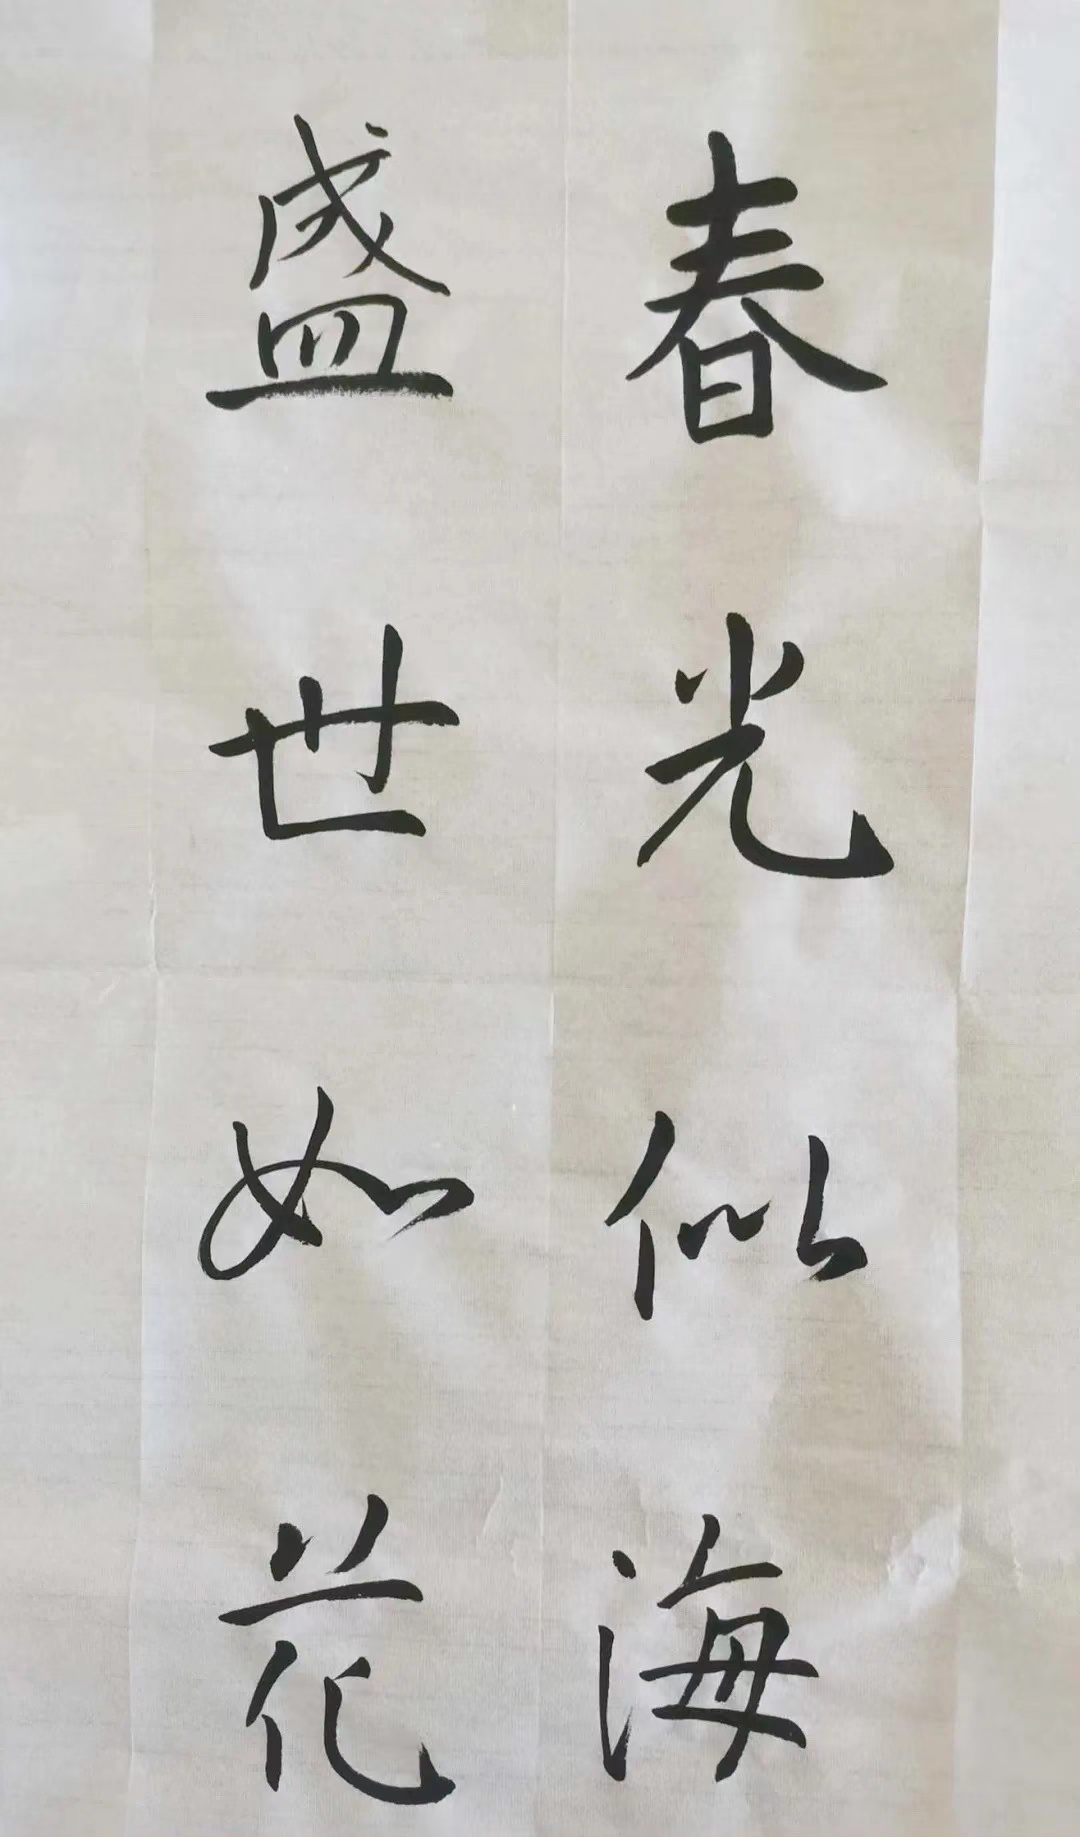 春光似海
盛世如花